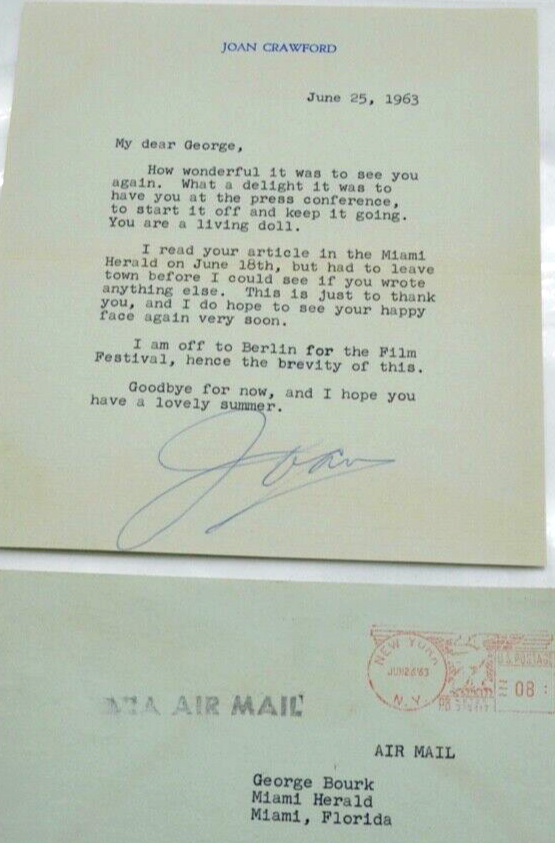 JOAN CRAWFORD
June 25, 1963
My dear George,
How wonderful it was to see you
again. What a delight it was to
have you at the press conference,
to start it off and keep it going.
You are a living doll.
I read your article in the Miami
Herald on June 18th, but had to leave
town before I could see if you wrote
anything else. This is just to thank
you, and I do hope to see your happy
face again very soon.
I am off to Berlin for the Film
Festival, hence the brevity of this.
Goodbye for now, and I hope you
have a lovely summer.
Joan
NEW YORK
N.Y.
U.S. POSTAGE
08
VIA AIR MAIL
AIR MAIL
George Bourk
Miami Herald
Miami, Florida